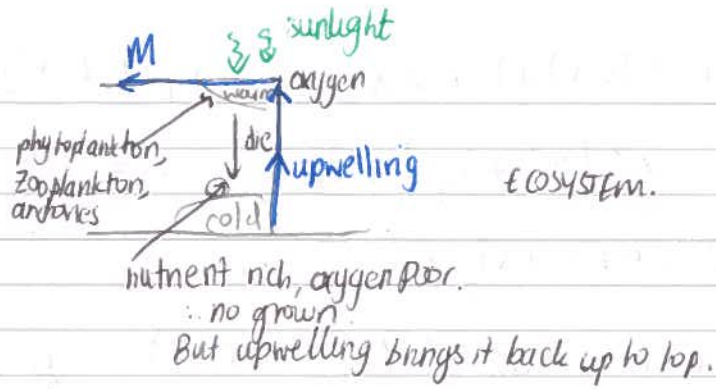 sunlight
M
oxygen
warm
phytoplankton,
zooplankton,
anchovies
die
upwelling
ECOSYSTEM.
cold
nutrient rich, oxygen poor.
∴ no grown.
But upwelling brings it back up to top.